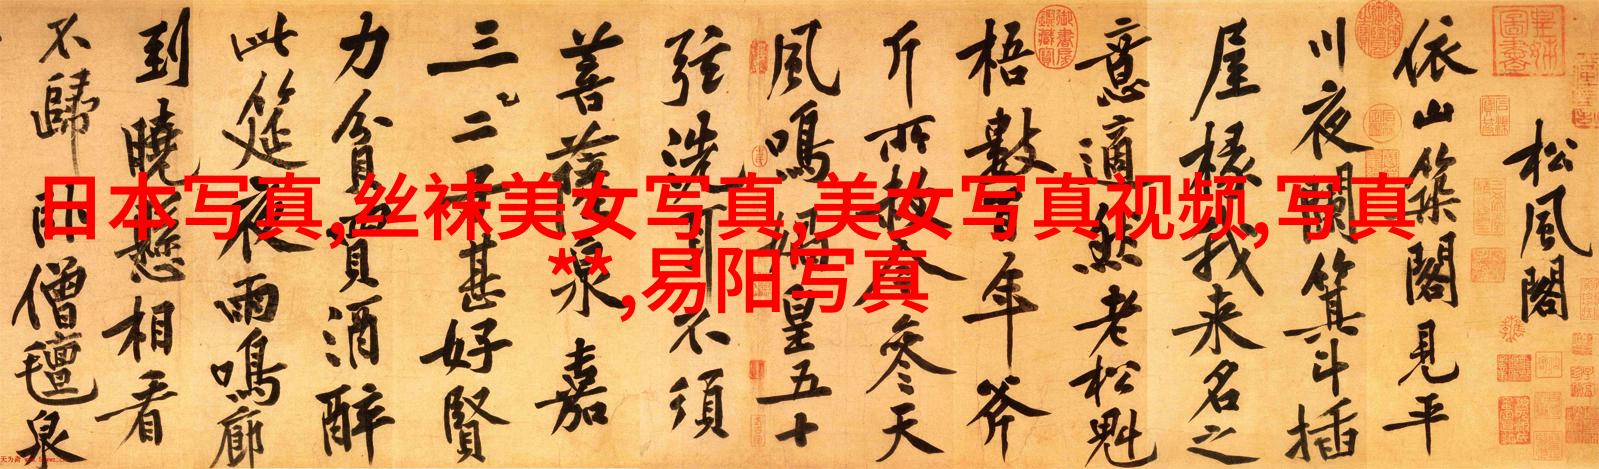 日本写真,丝袜美女写真,美女写真视频,写真
**,易阳写真
松風閣
依山築閣見平
川夜闌箕斗插
屋椽我來名之
意適然老松魁
梧數百年斧
斤所赦今參天
風鳴媧皇五十
弦洗耳不須
菩薩泉嘉
三二子甚好賢
力貧買酒醉
此筵夜雨鳴廊
到曉懸相看
不歸臥僧氊泉
皇姊圖書